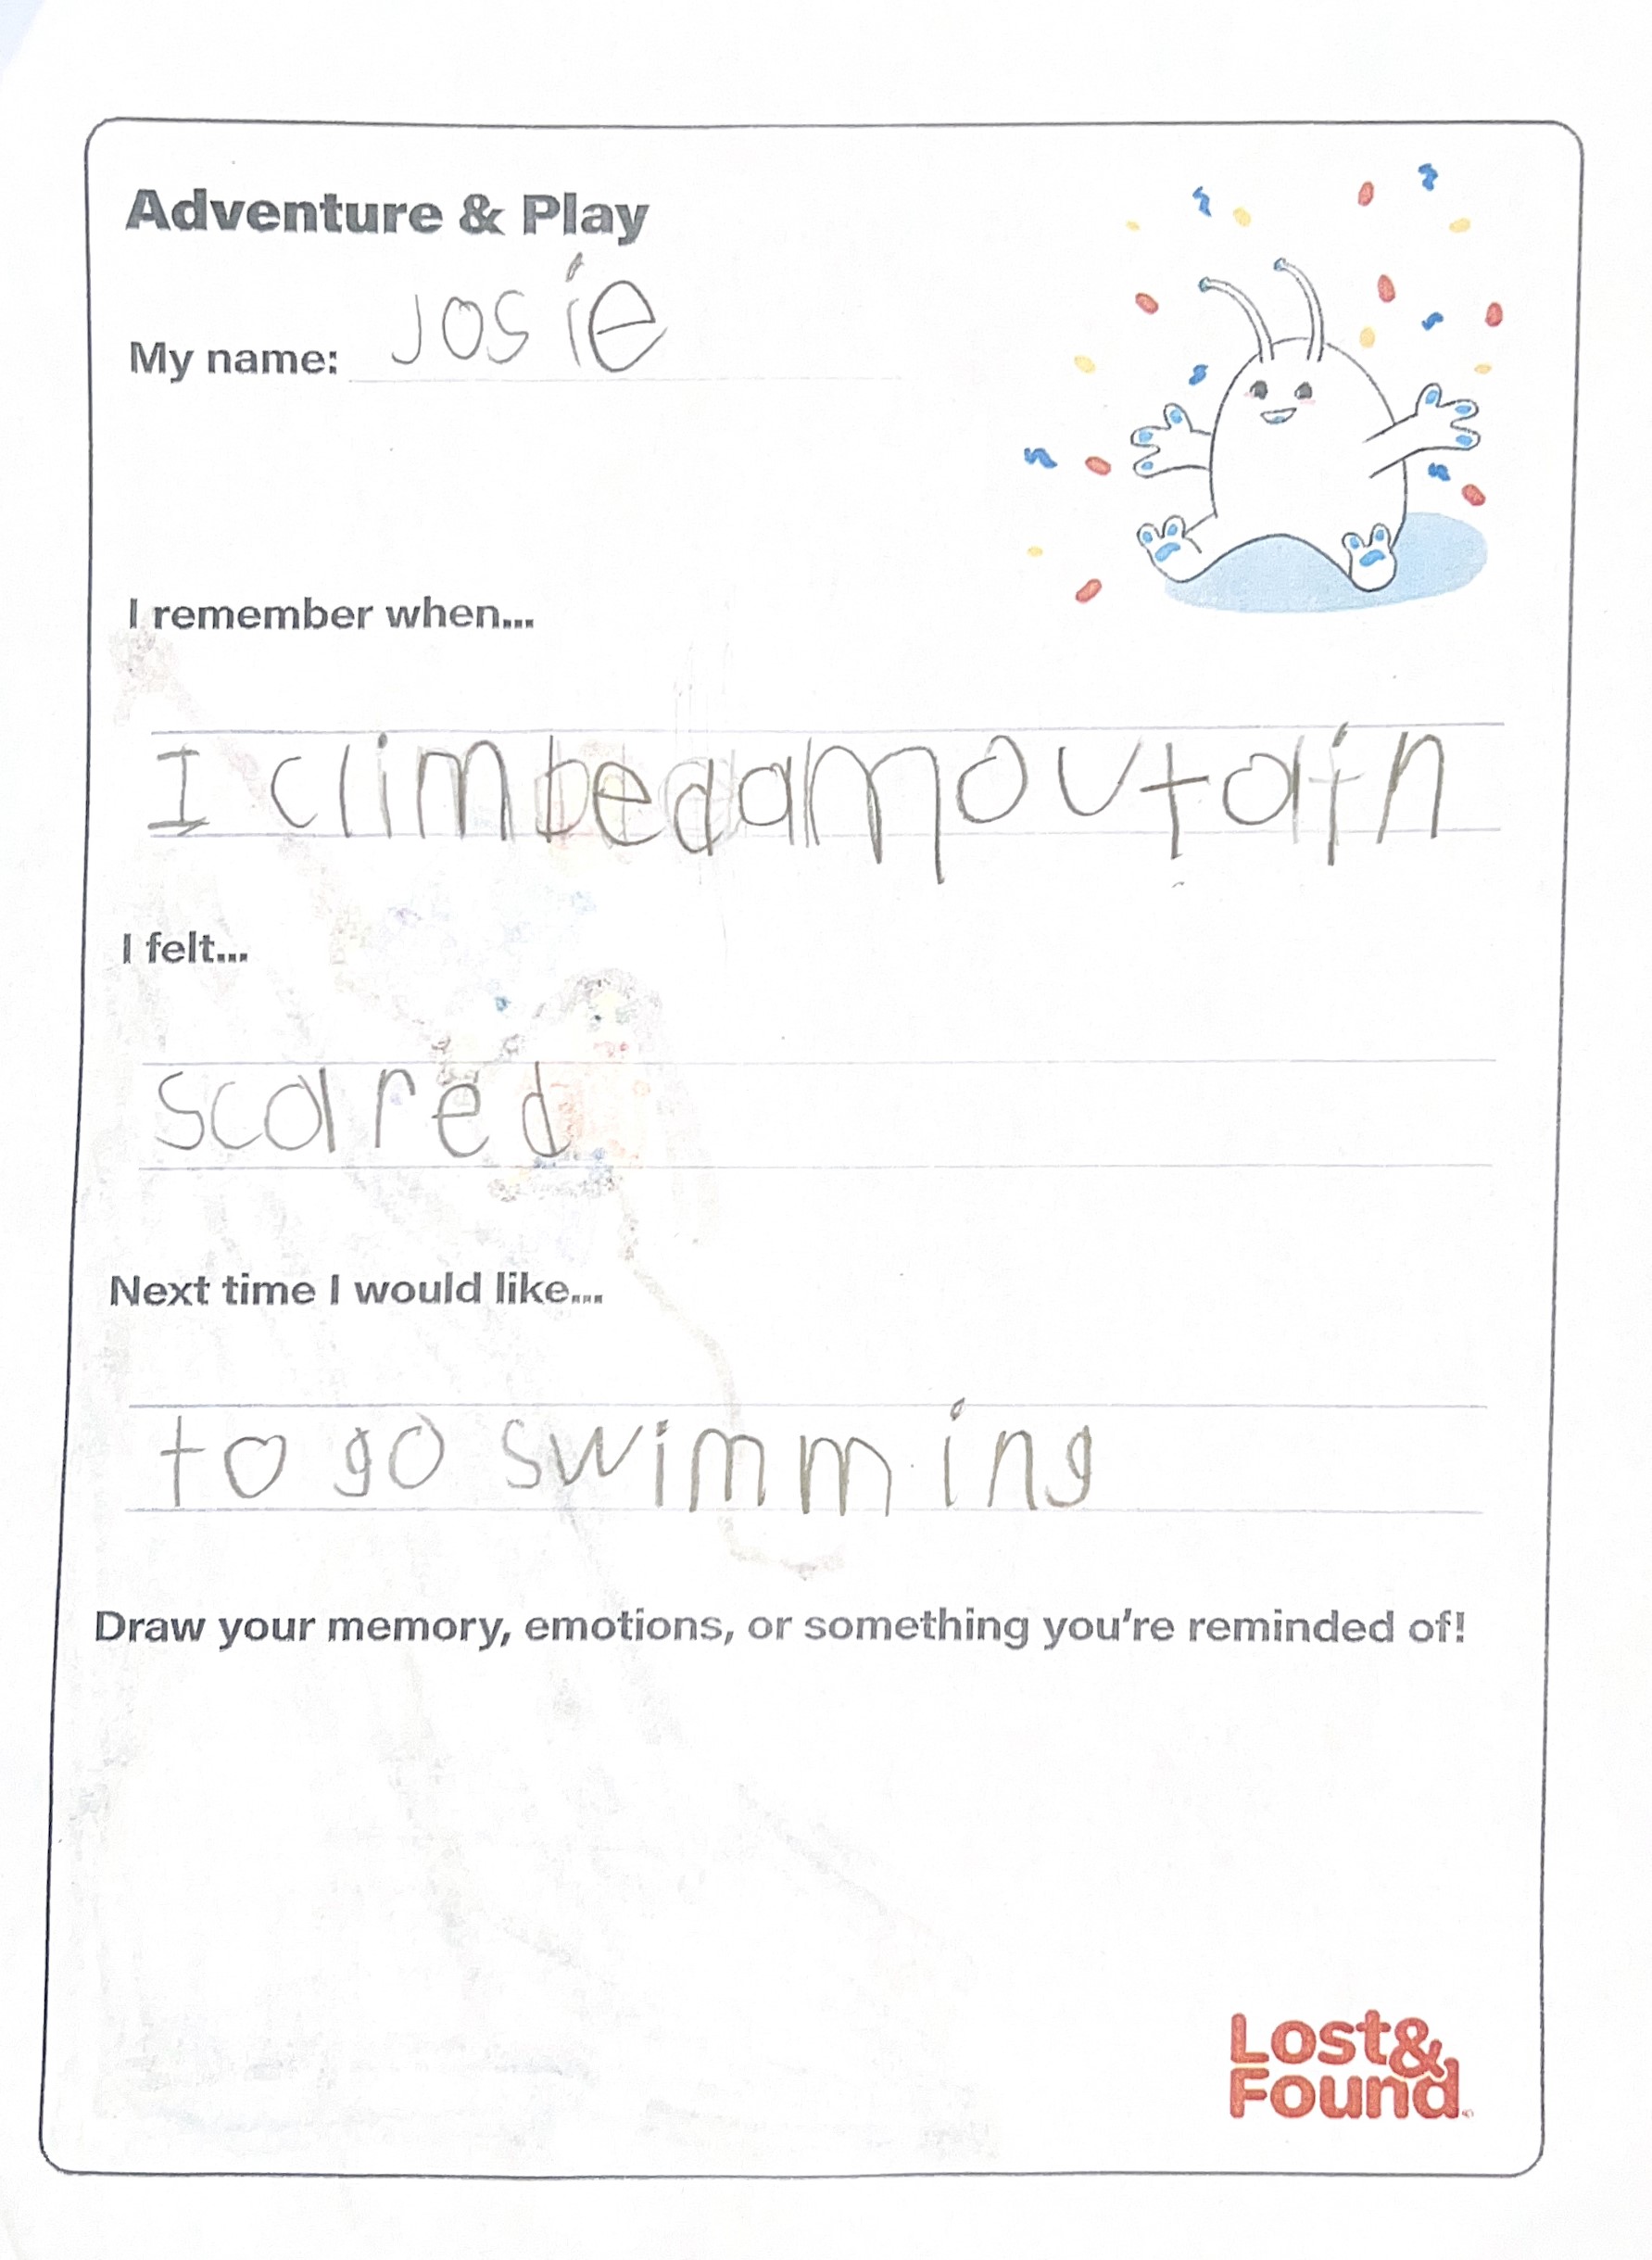 Adventure & Play
My name: Josie
I remember when...
I climbedamoutain
I felt...
scared
Next time I would like...
to go swimming
Draw your memory, emotions, or something you're reminded of!
Lost&
Found